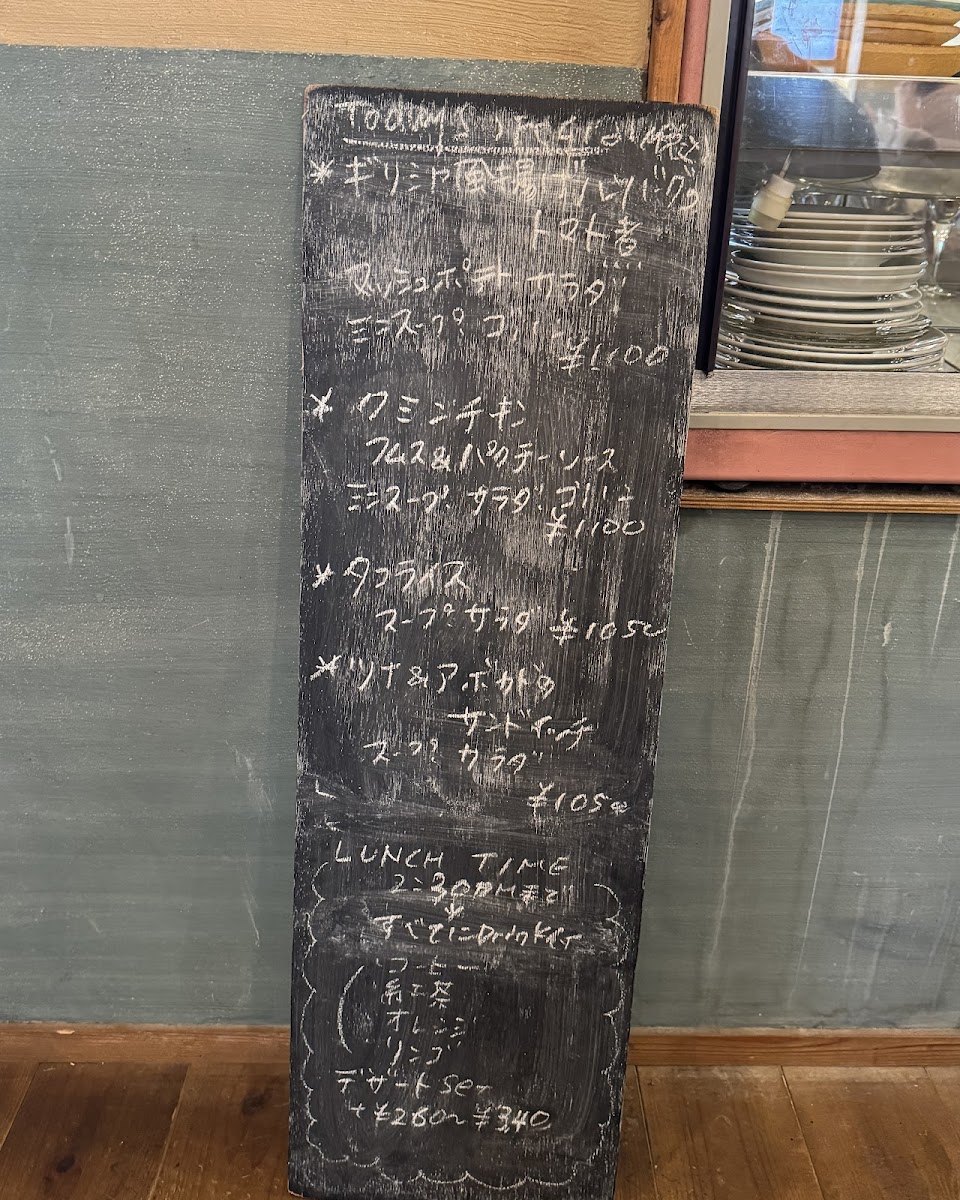 Today's special 税込
* ギリシャ風揚げハンバーグの
トマト煮
マッシュポテト サラダ
ミニスープ. ゴハン
¥1100
* クミンチキン
フムス&パクチーソース
ミニスープ. サラダ. ゴハン
¥1100
* タコライス
スープ. サラダ ¥1050
* ツナ&アボカドの
サンドイッチ
スープ. サラダ
¥1050
LUNCH TIME
2:30PMまで
すべてにDrink付
コーヒー
紅茶
オレンジ
リンゴ
デザートset
+¥280~¥340